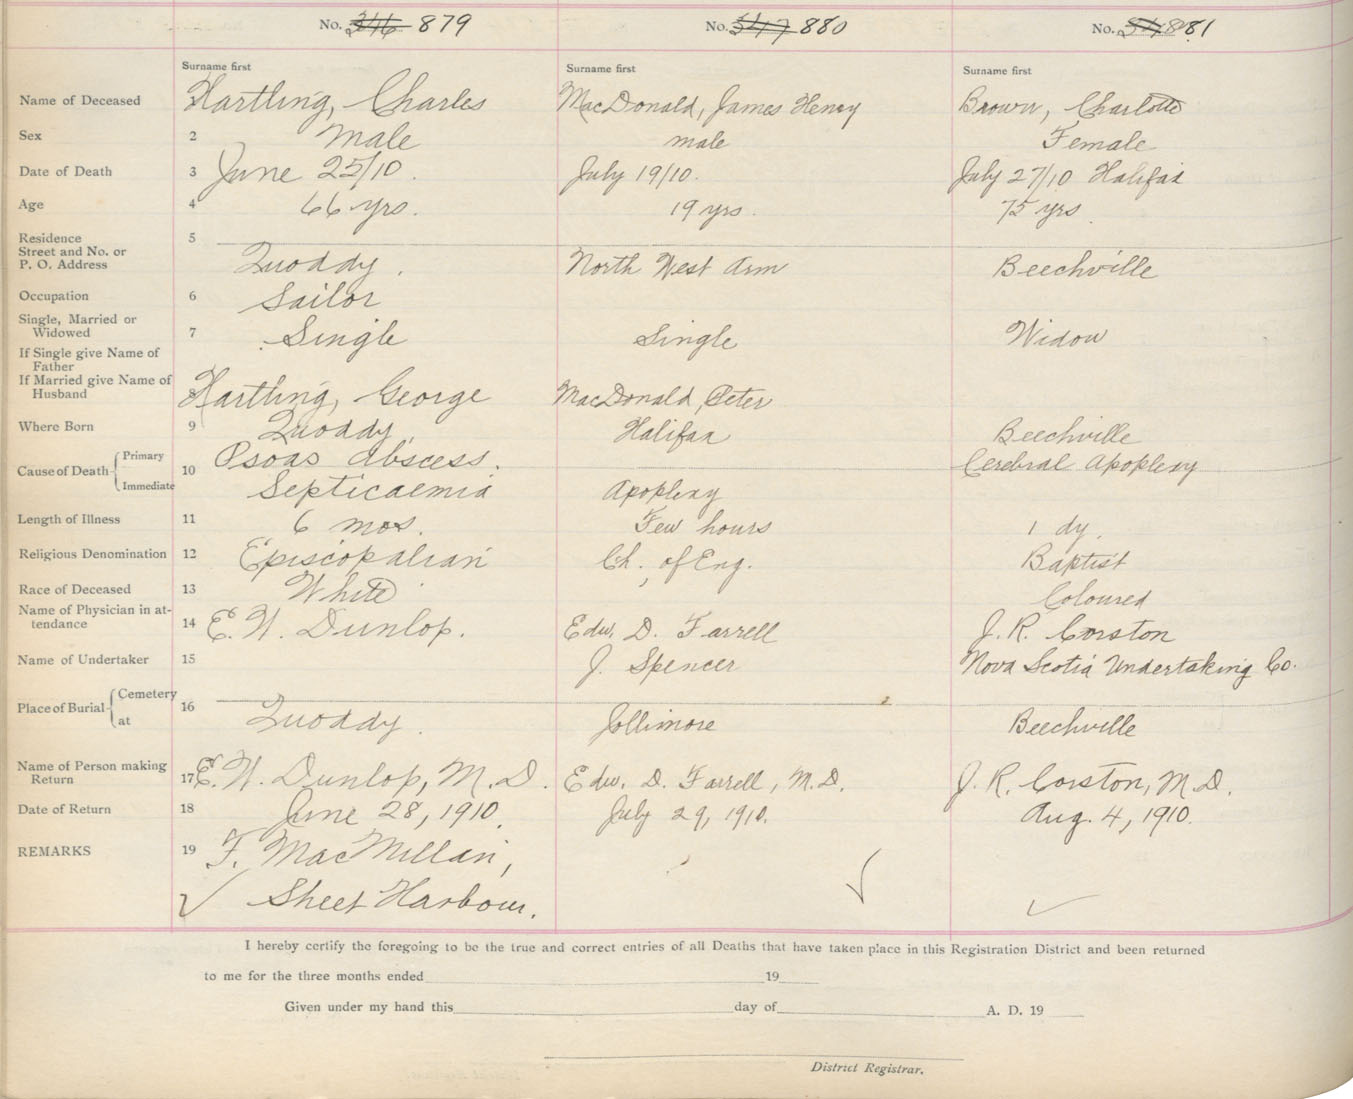 No. 346 879 No. 547 880 No. 881
Surname first Surname first Surname first
Name of Deceased 1 Hartling, Charles MacDonald, James Henry Brown, Charlotte
Sex 2 Male male Female
Date of Death 3 June 25/10. July 19/10. July 27/10 Halifax
Age 4 66 yrs. 19 yrs. 75 yrs
Residence 5
Street and No. or
P. O. Address Quoddy. North West Arm Beechville
Occupation 6 Sailor
Single, Married or
Widowed 7 Single Single Widow
If Single give Name of
Father
If Married give Name of
Husband 8 Hartling, George MacDonald, Peter
Where Born 9 Quoddy, Halifax Beechville
Cause of Death 10 Primary Psoas abscess. Cerebral Apoplexy
Immediate Septicaemia Apoplexy
Length of Illness 11 6 mos. Few hours 1 dy.
Religious Denomination 12 Episcopalian Ch. of Eng. Baptist
Race of Deceased 13 White Coloured
Name of Physician in at-
tendance 14 E. W. Dunlop. Edw. D. Farrell J. R. Corston
Name of Undertaker 15 J. Spencer Nova Scotia Undertaking Co.
Place of Burial 16 Cemetery
at Quoddy. Jollimore Beechville
Name of Person making
Return 17 E. W. Dunlop, M.D. Edw. D. Farrell, M.D. J. R. Corston, M.D.
Date of Return 18 June 28, 1910 July 29, 1910. Aug. 4, 1910.
REMARKS 19 F. MacMillan,
Sheet Harbour.
I hereby certify the foregoing to be the true and correct entries of all Deaths that have taken place in this Registration District and been returned
to me for the three months ended 19
Given under my hand this day of A. D. 19
District Registrar.